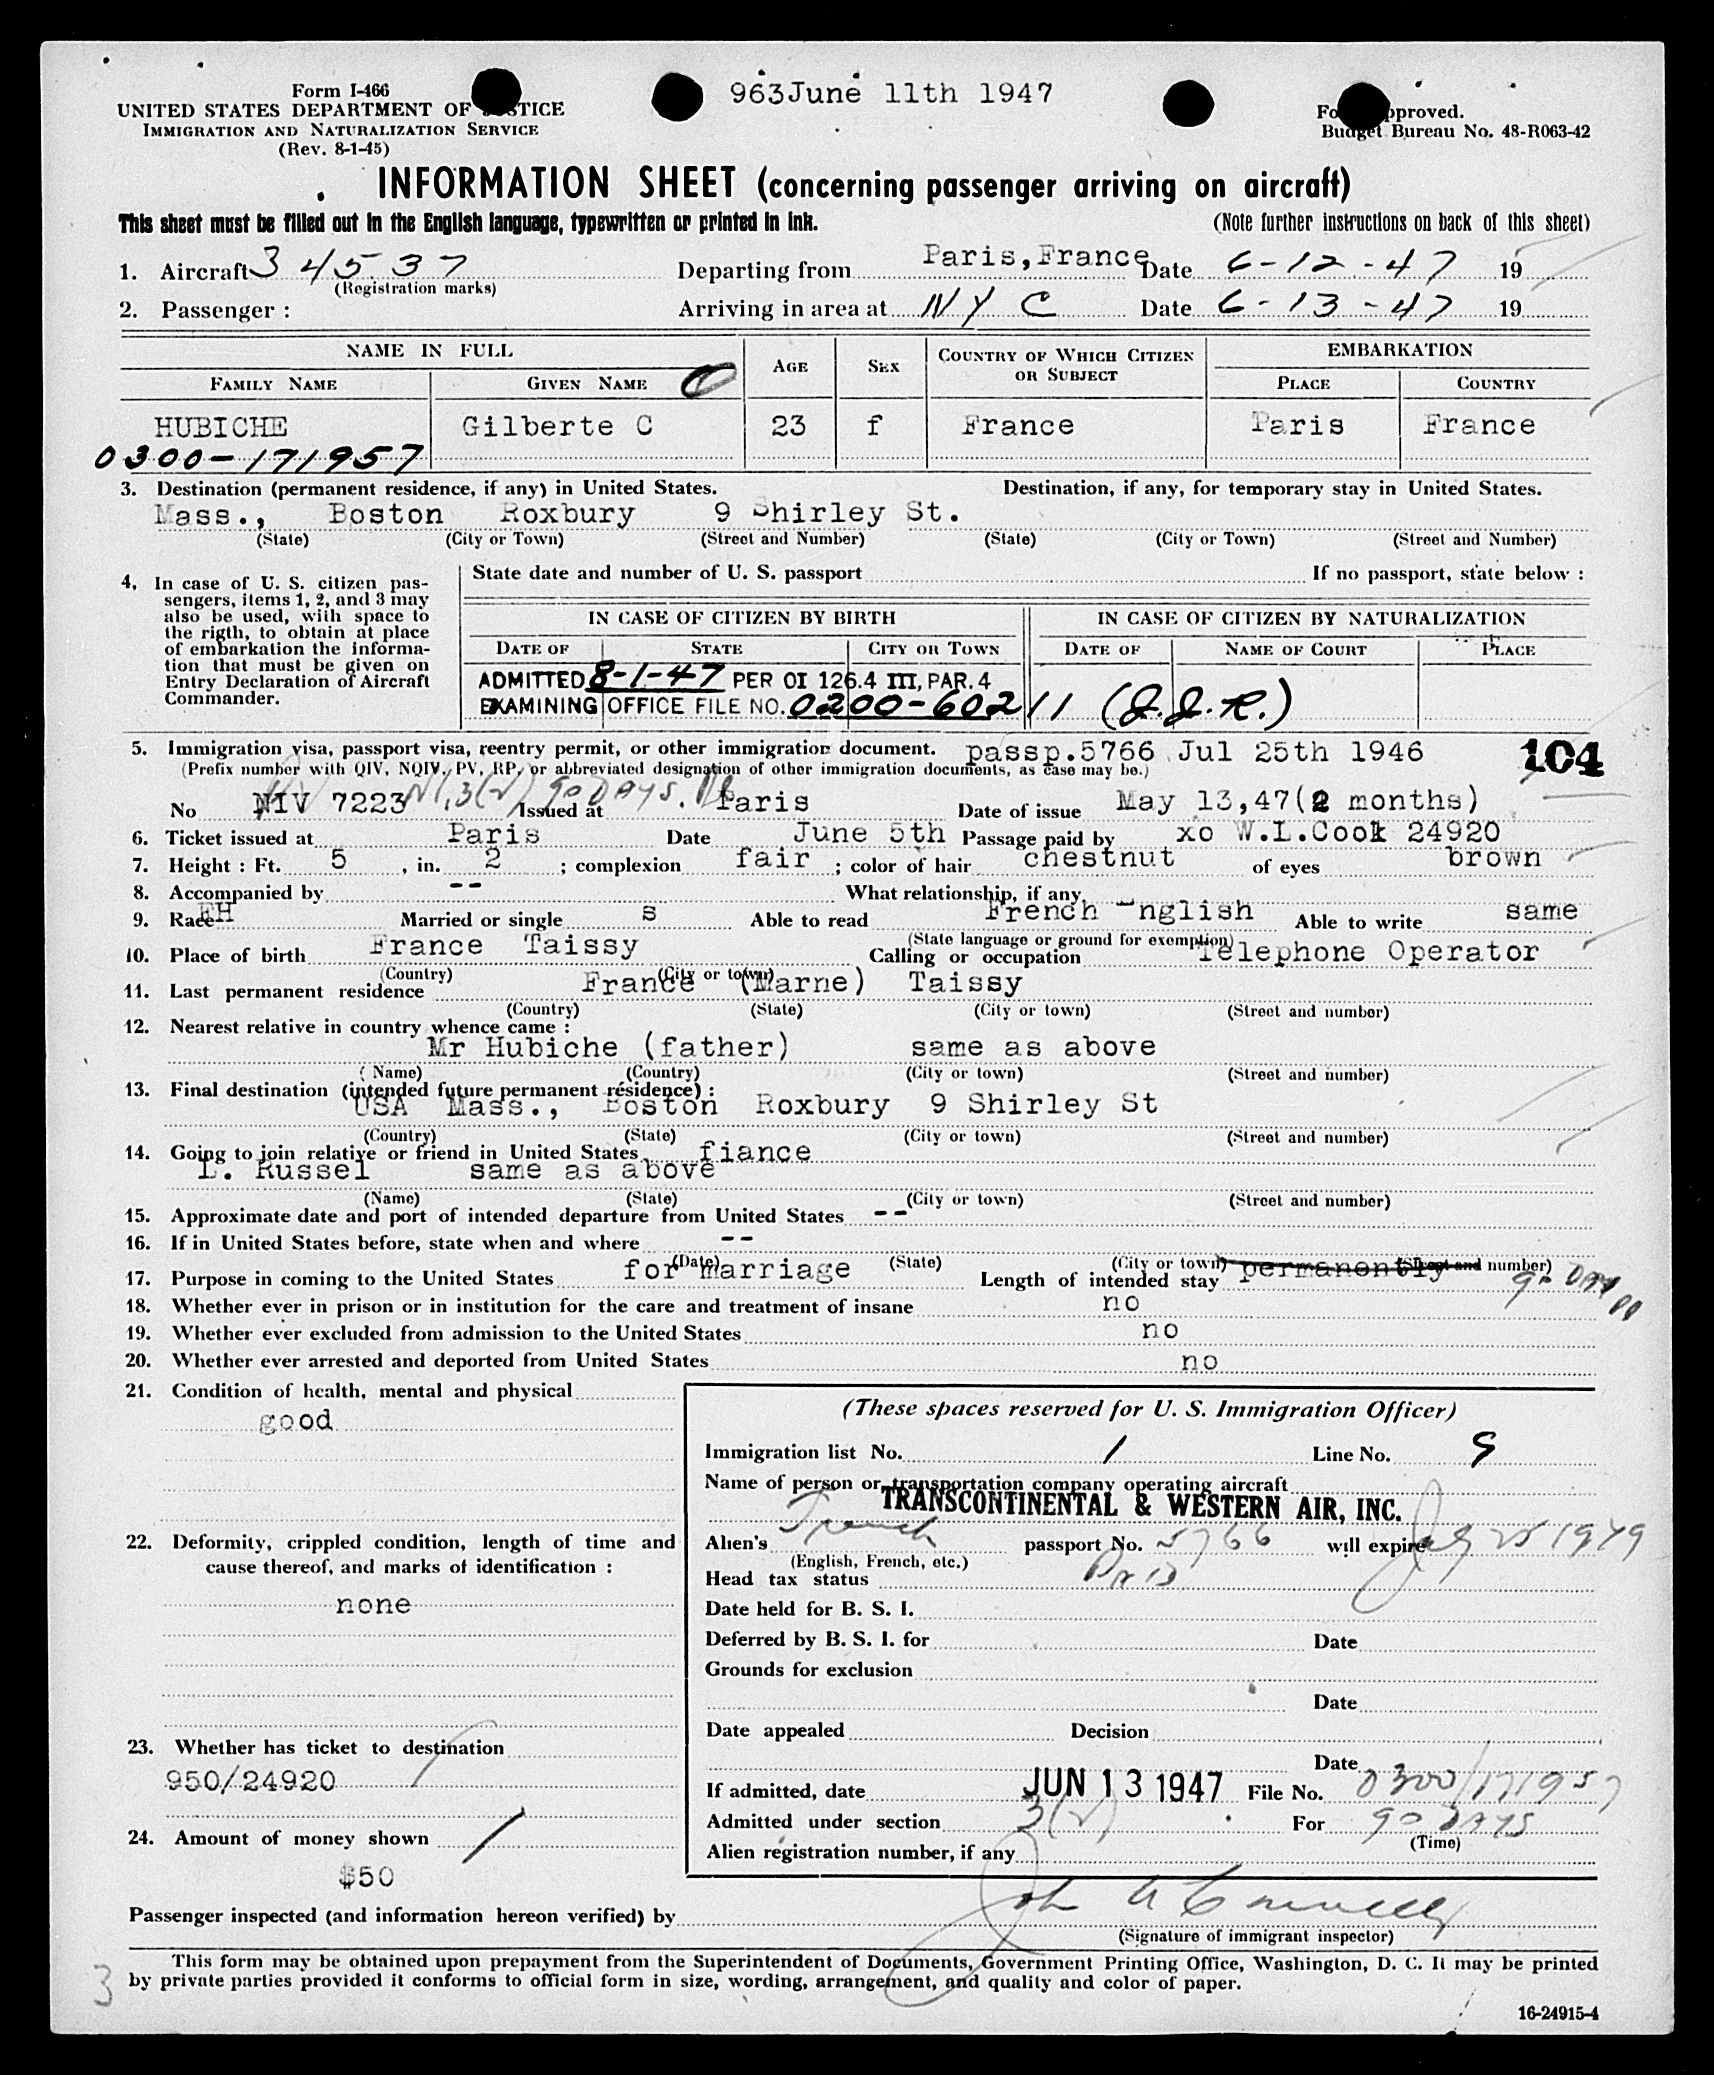 963June 11th 1947
Form I-466
UNITED STATES DEPARTMENT OF JUSTICE
IMMIGRATION AND NATURALIZATION SERVICE
(Rev. 8-1-45)
Form approved.
Budget Bureau No. 48-R063-42
INFORMATION SHEET (concerning passenger arriving on aircraft)
This sheet must be filled out in the English language, typewritten or printed in ink. (Note further instructions on back of this sheet)
1. Aircraft 34537 Departing from Paris,France Date 6-12-47 19
(Registration marks)
2. Passenger : Arriving in area at NYC Date 6-13-47 19
NAME IN FULL AGE SEX COUNTRY OF WHICH CITIZEN OR SUBJECT EMBARKATION
FAMILY NAME GIVEN NAME PLACE COUNTRY
HUBICHE Gilberte C 23 f France Paris France
0300-171957
3. Destination (permanent residence, if any) in United States. Destination, if any, for temporary stay in United States.
Mass., Boston Roxbury 9 Shirley St.
(State) (City or Town) (Street and Number) (State) (City or Town) (Street and Number)
4, In case of U. S. citizen pas-
sengers, items 1, 2, and 3 may
also be used, with space to
the rigth, to obtain at place
of embarkation the informa-
tion that must be given on
Entry Declaration of Aircraft
Commander.
State date and number of U. S. passport If no passport, state below :
IN CASE OF CITIZEN BY BIRTH IN CASE OF CITIZEN BY NATURALIZATION
DATE OF STATE CITY OR TOWN DATE OF NAME OF COURT PLACE
ADMITTED 8-1-47 PER OI 126.4 III, PAR. 4
EXAMINING OFFICE FILE NO. 0200-60211 (J.J.R.)
5. Immigration visa, passport visa, reentry permit, or other immigration document. passp.5766 Jul 25th 1946 104
(Prefix number with QIV, NQIV, PV, RP, or abbreviated designation of other immigration documents, as case may be.)
No NIV 7223 3(2) 90 DAYS. Issued at Paris Date of issue May 13,47(2 months)
6. Ticket issued at Paris Date June 5th Passage paid by xo W.L.Cook 24920
7. Height : Ft. 5 , in. 2 ; complexion fair ; color of hair chestnut of eyes brown
8. Accompanied by -- What relationship, if any --
9. Race FH Married or single s Able to read French English Able to write same
(State language or ground for exemption)
10. Place of birth France Taissy Calling or occupation Telephone Operator
(Country) (City or town)
11. Last permanent residence France (Marne) Taissy
(Country) (State) (City or town) (Street and number)
12. Nearest relative in country whence came :
Mr Hubiche (father) same as above
(Name) (Country) (City or town) (Street and number)
13. Final destination (intended future permanent résidence) :
USA Mass., Boston Roxbury 9 Shirley St
(Country) (State) (City or town) (Street and number)
14. Going to join relative or friend in United States fiance
L. Russel same as above
(Name) (State) (City or town) (Street and number)
15. Approximate date and port of intended departure from United States --
16. If in United States before, state when and where --
(Date) (State) (City or town) (Street and number)
17. Purpose in coming to the United States for marriage Length of intended stay permanently 90 DAYS
18. Whether ever in prison or in institution for the care and treatment of insane no
19. Whether ever excluded from admission to the United States no
20. Whether ever arrested and deported from United States no
21. Condition of health, mental and physical
good
22. Deformity, crippled condition, length of time and
cause thereof, and marks of identification :
none
23. Whether has ticket to destination
950/24920
24. Amount of money shown
$50
(These spaces reserved for U. S. Immigration Officer)
Immigration list No. 1 Line No. 9
Name of person or transportation company operating aircraft
TRANSCONTINENTAL & WESTERN AIR, INC.
Alien's French passport No. 5766 will expire July 25 1949
(English, French, etc.)
Head tax status Paid
Date held for B. S. I.
Deferred by B. S. I. for Date
Grounds for exclusion
Date
Date appealed Decision
Date
If admitted, date JUN 13 1947 File No. 0300/171957
Admitted under section 3(2) For 90 DAYS
(Time)
Alien registration number, if any
Passenger inspected (and information hereon verified) by John
(Signature of immigrant inspector)
This form may be obtained upon prepayment from the Superintendent of Documents, Government Printing Office, Washington, D. C. It may be printed
by private parties provided it conforms to official form in size, wording, arrangement, and quality and color of paper.
3
16-24915-4